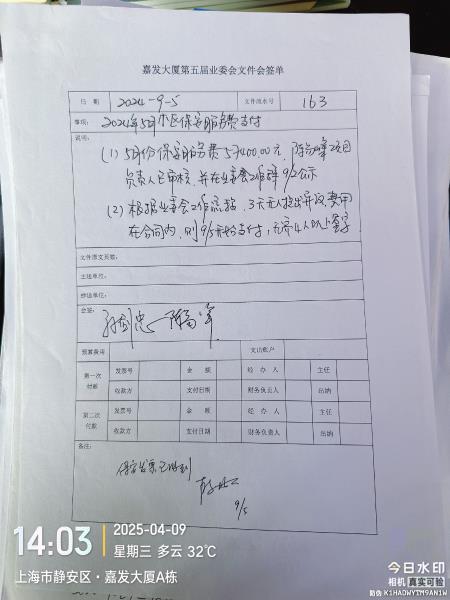 嘉发大厦第五届业委会文件会签单
日 期 2024-9-5 文件流水号 163
事项: 2024年5月小区保安服务费支付
说明:
(1) 5月份保安服务费57400.00元,
负责人已审核, 并在业委会工作群9/2公示
(2) 根据业委会工作流程, 3天无人提出异议, 费用
在合同内, 则9/5开始支付, 无需4人以上签字
文件原文页数:
主送单位:
抄送单位:
会签:
预算费用 支出账户
第一次付款 发票号 金 额 经 办 人 主任
收款方 支付日期 财务负责人 出纳
第二次付款 发票号 金 额 经 办 人 主任
收款方 支付日期 财务负责人 出纳
备注:
保安发票已收到
9/5
14:03 2025-04-09
星期三 多云 32℃
上海市静安区·嘉发大厦A栋
今日水印
相机 真实可验
防伪 K1HADWYTM9AN1W